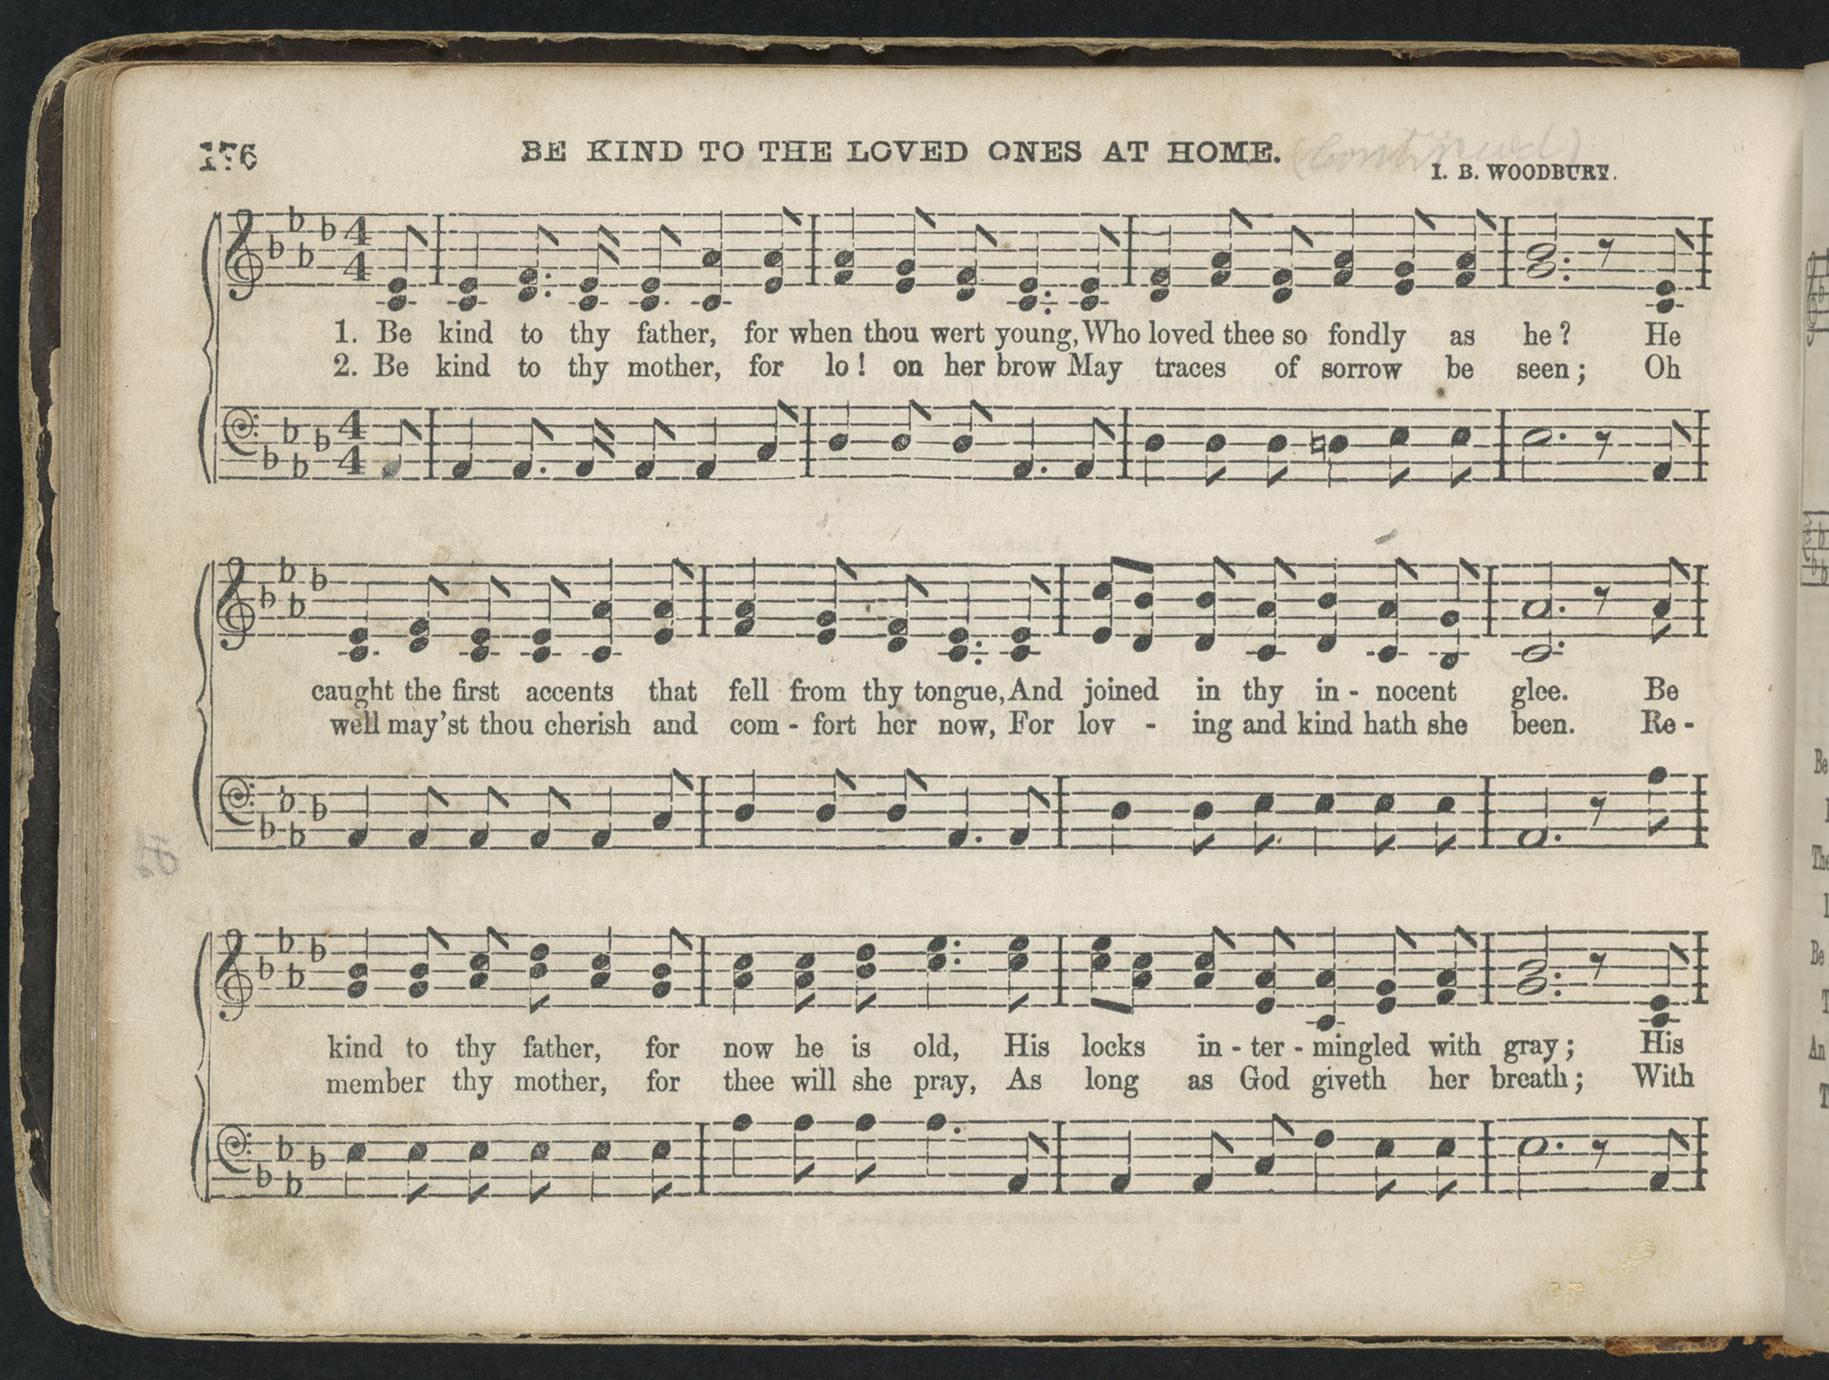 176
BE KIND TO THE LOVED ONES AT HOME. (Continued)
I. B. WOODBURY.
4
4
1. Be kind to thy father, for when thou wert young, Who loved thee so fondly as he? He
2. Be kind to thy mother, for lo! on her brow May traces of sorrow be seen; Oh
4
4
caught the first accents that fell from thy tongue, And joined in thy in - nocent glee. Be
well may'st thou cherish and com - fort her now, For lov - ing and kind hath she been. Re -
kind to thy father, for now he is old, His locks in - ter - mingled with gray; His
member thy mother, for thee will she pray, As long as God giveth her breath; With
Be
The
Be
An